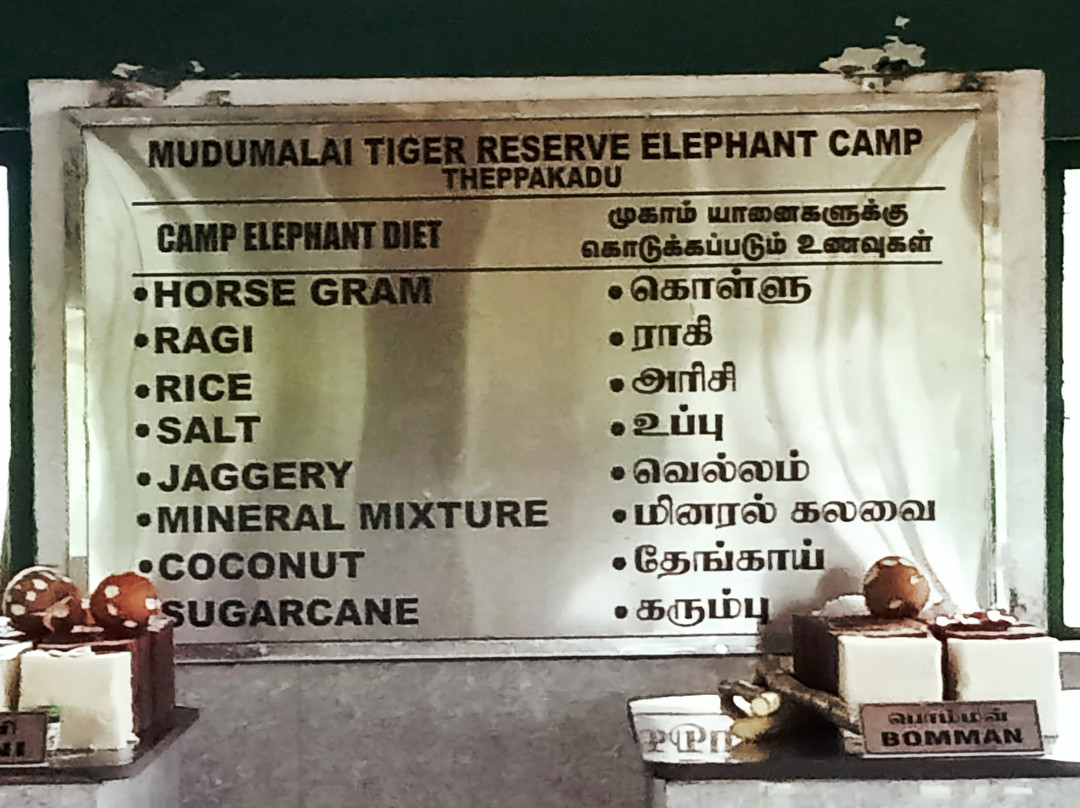 MUDUMALAI TIGER RESERVE ELEPHANT CAMP
THEPPAKADU
CAMP ELEPHANT DIET
முகாம் யானைகளுக்கு
கொடுக்கப்படும் உணவுகள்
•HORSE GRAM
•கொள்ளு
•RAGI
•ராகி
•RICE
•அரிசி
•SALT
•உப்பு
•JAGGERY
•வெல்லம்
•MINERAL MIXTURE
•மினரல் கலவை
•COCONUT
•தேங்காய்
SUGARCANE
•கரும்பு
பொம்மன்
BOMMAN